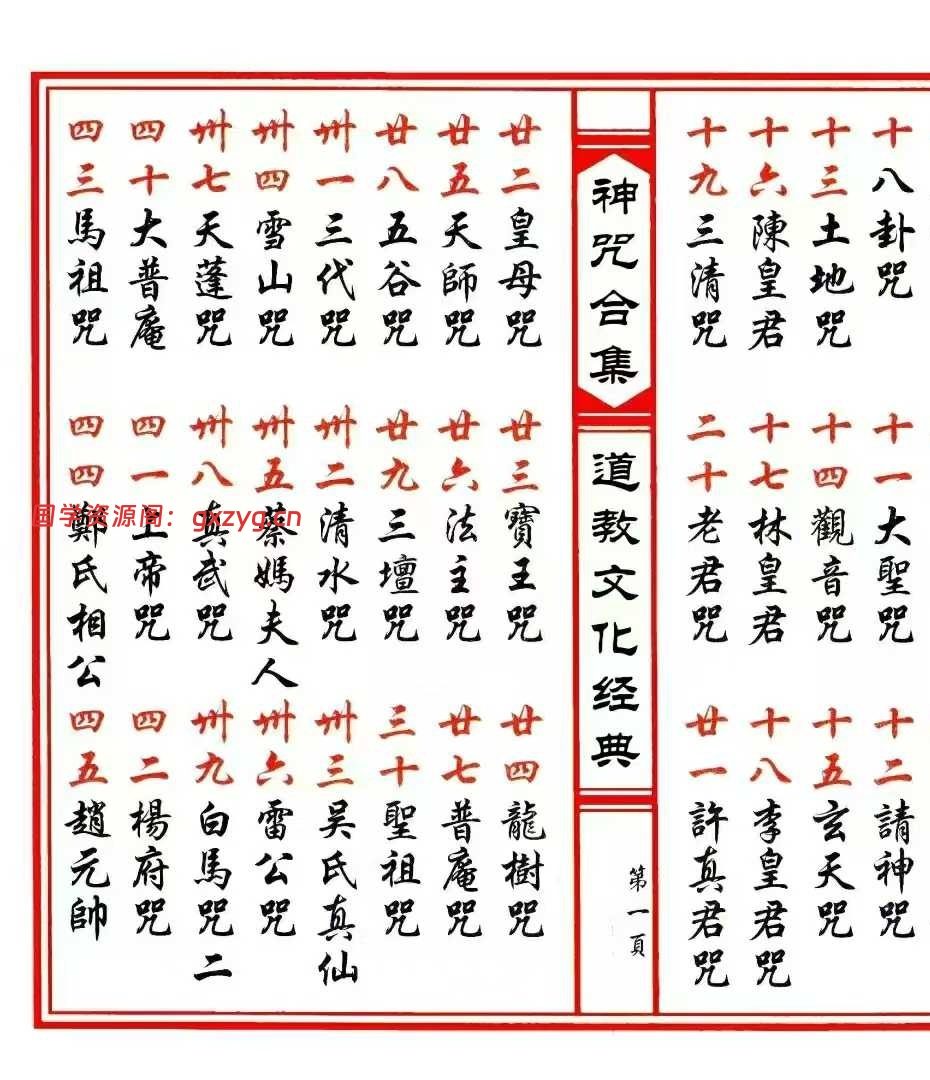 十八卦咒 十一大聖咒 十二請神咒
十三土地咒 十四觀音咒 十五玄天咒
十六陳皇君 十七林皇君 十八李皇君咒
十九三清咒 二十老君咒 廿一許真君咒
神咒合集 道教文化经典 第一頁
廿二皇母咒 廿三寶王咒 廿四龍樹咒
廿五天師咒 廿六法主咒 廿七普庵咒
廿八五谷咒 廿九三壇咒 三十聖祖咒
卅一三代咒 卅二清水咒 卅三吴氏真仙
卅四雪山咒 卅五蔡媽夫人 卅六雷公咒
卅七天蓬咒 卅八真武咒 卅九白馬咒二
四十大普庵 四一上帝咒 四二楊府咒
四三馬祖咒 四四鄭氏相公 四五趙元帥
国学资源阁：gxzyg.cn